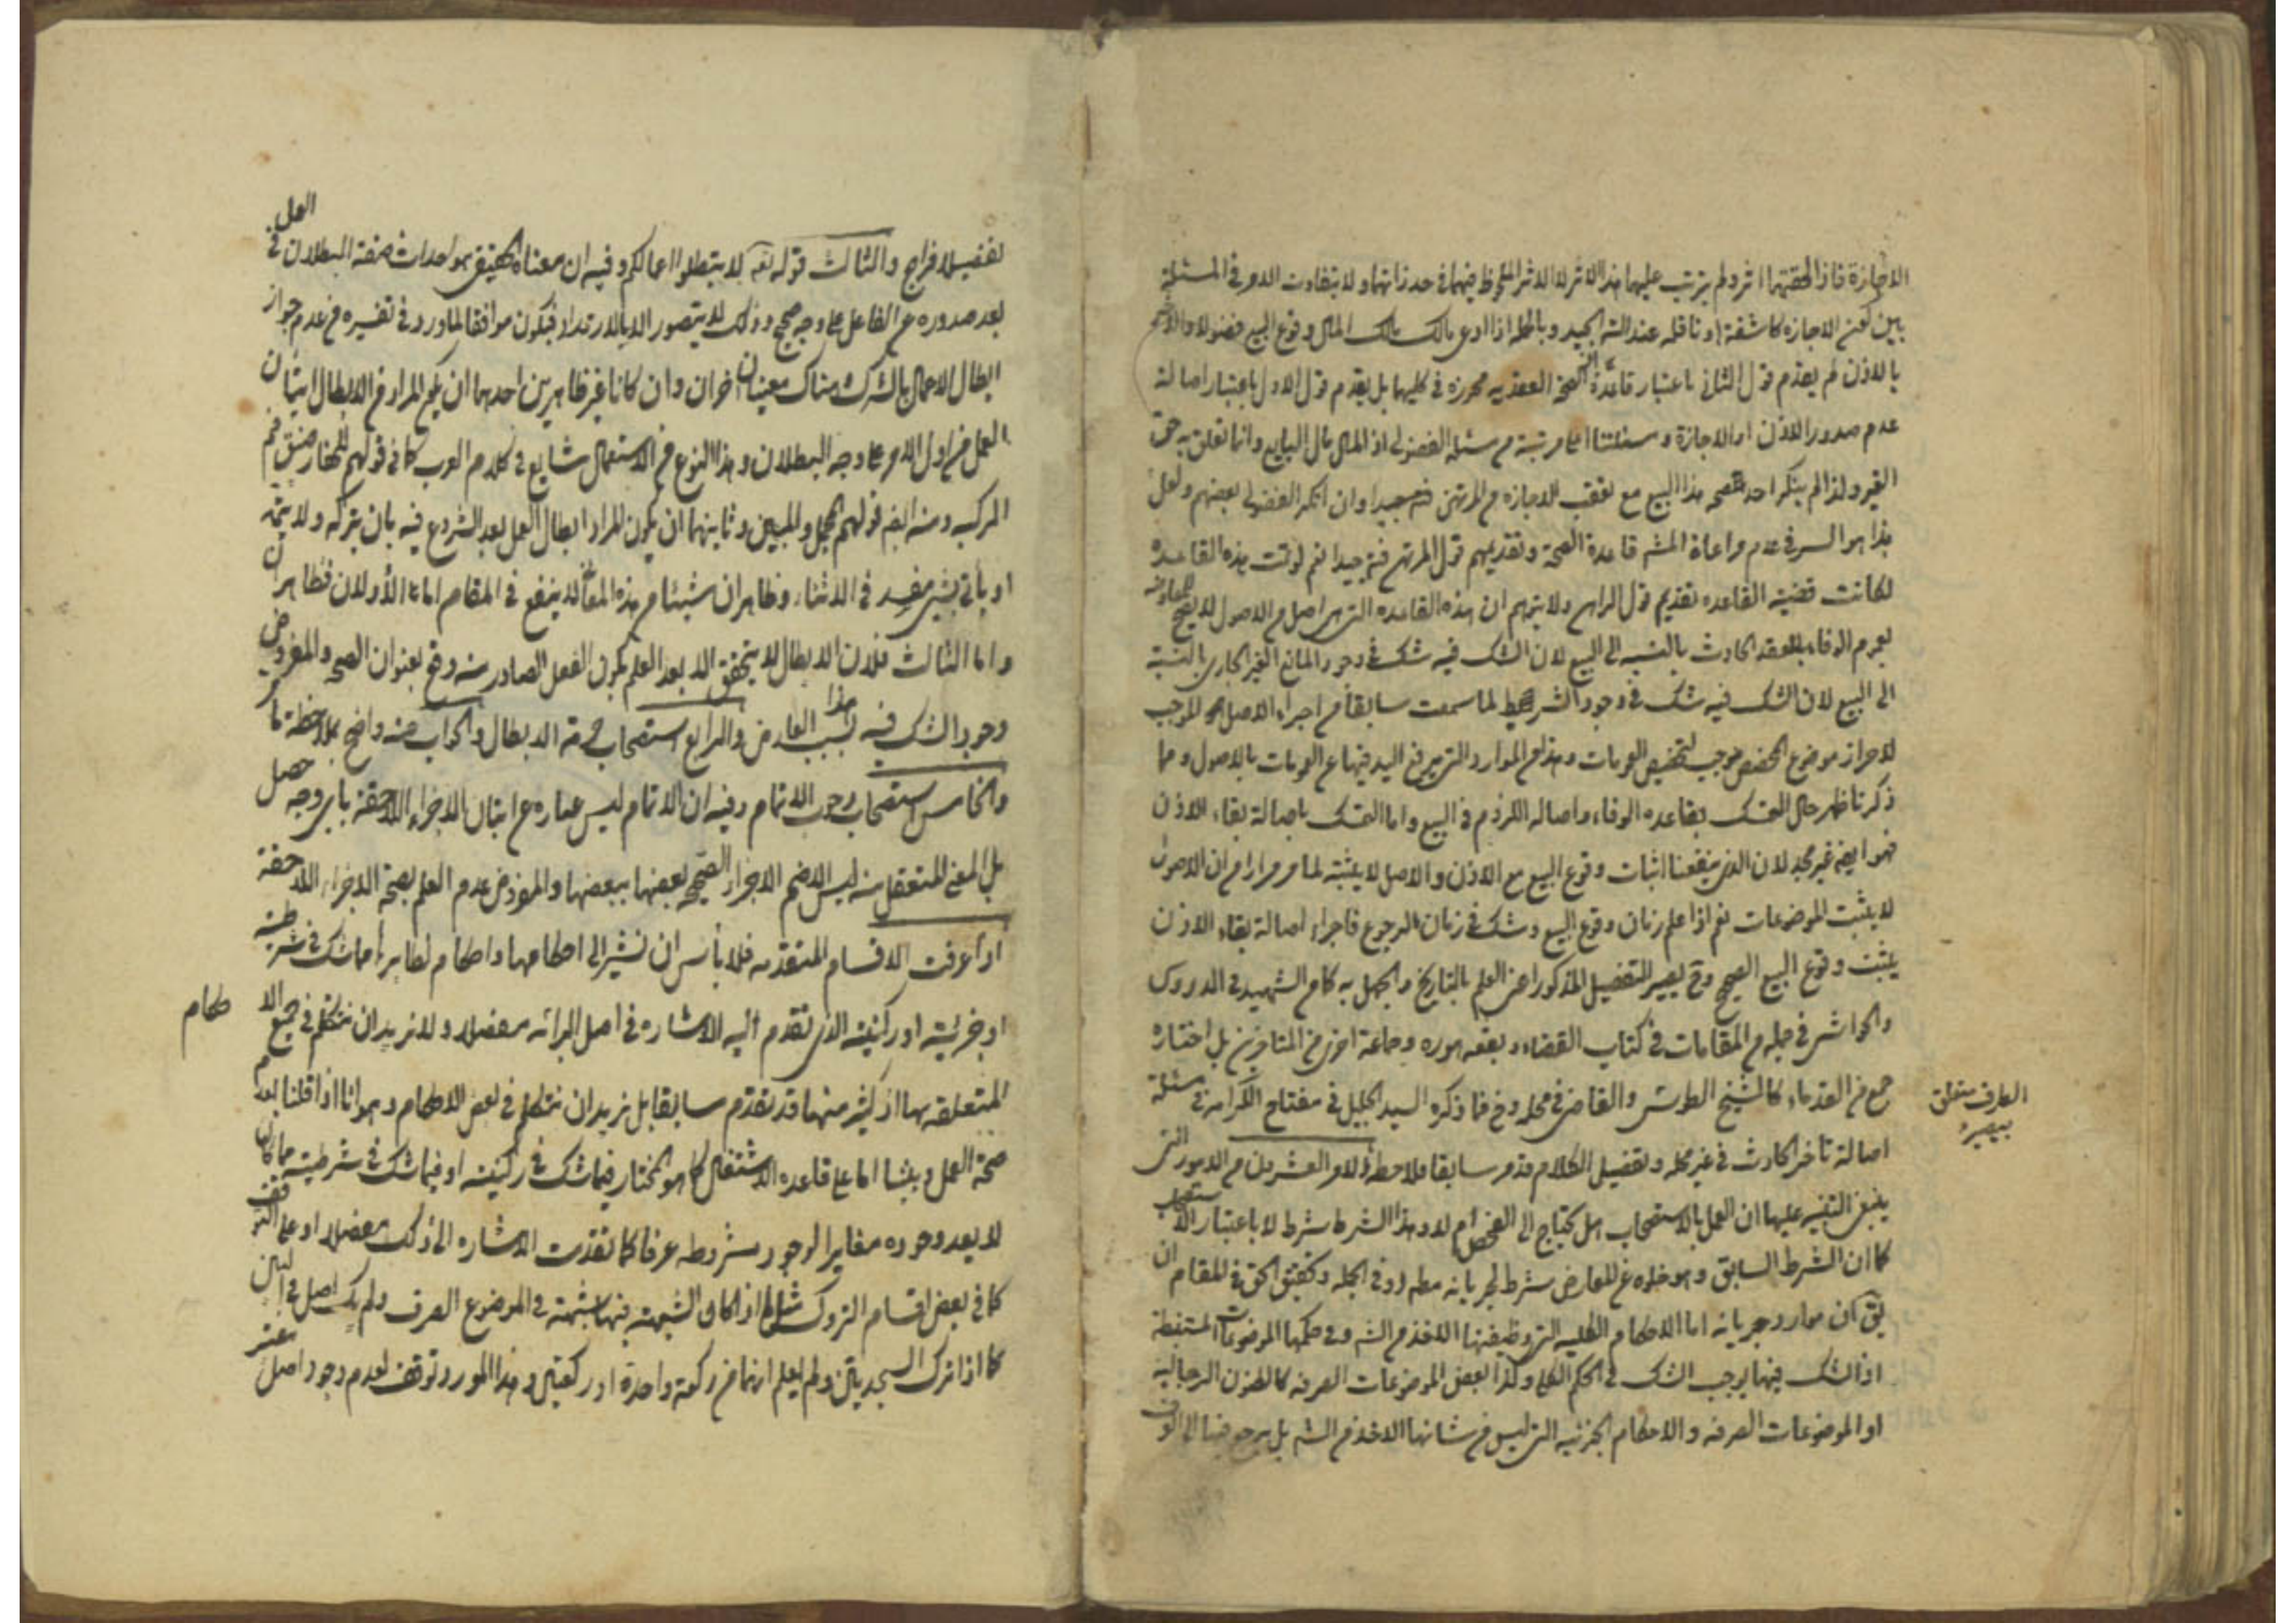 الاجازة فاذا لحقتهما اثر ولم يترتب عليهما هذا الاثر لا الاثر الملحوظ فيهما في حد ذاتهما ولا يتفاوت الامر في المسئلة
بين كون الاجازه كاشفة او ناقله عند الجيد وبالجملة اذا ادعى مالك المال وقوع البيع فضولا
بالاذن لم يقدم قول الثاني باعتبار قاعدة الصحة العقديه محرزه في كليهما بل يقدم قول الاول باعتبار اصالة
عدم صدور الاذن او الاجازة و مسئلتنا اعلى مرتبة من مسئله الفضولي اذ المال مال البايع وانما تعلق به حق
الغير ولذا لم ينكر احد صحه هذا البيع مع تعقب الاجازه من المرتهن وان انكر الفضولي بعضهم ولعل
هذا هو السر في عدم مراعاة قاعدة الصحة وتقديمهم قول المرتهن جيدا نعم لو تمت هذه القاعده
لكانت قضية القاعده تقديم قول الراهن ولا يتوهم ان هذه القاعده التي هي اصل من الاصول لا
بعموم الوفاء بالعقد الحادث بالنسبه الى البيع لان الشك فيه شك في وجود المانع الغير الجاري بالنسبة
الى البيع لان الشك فيه شك في وجود الشرط لما سمعت سابقا من اجراء الاصل الموجب
لاحراز موضوع المخصص موجب لتخصيص العمومات وهذا من الموارد التي فيها عن العمومات بالاصول ومما
ذكرنا ظهر حال التمسك بقاعده الوفاء واصاله اللزوم في البيع واما التمسك باصالة بقاء الاذن
فهو ايضا غير مجد لان الذي ينفعنا اثبات وقوع البيع مع الاذن والاصل لا يثبته لما مر مرارا من ان الاصول
لا يثبت الموضوعات نعم اذا علم زمان وقوع البيع وشك في زمان الرجوع فاجراء اصالة بقاء الاذن
يثبت وقوع البيع الصحيح وح يصير التفصيل المذكور اعني العلم بالتاريخ والجهل به كما من الشهيد في الدروس
والحواشي في جملة من المقامات في كتاب القضاء وجماعة اخرى من المتاخرين بل اختاره
جمع من القدماء كالشيخ الطوسي والقاضي في محله وح فما ذكره السيد الجليل في مفتاح الكرامه في مسئلة
الظرف متعلق
بيصير
اصالة تأخر الحادث في غير محله وتفصيل الكلام قد مر سابقا فلاحظه الامر العشرون من الامور التي
ينبغي التنبيه عليها ان العمل بالاستصحاب هل يحتاج الى الفحص ام لا وهذا الشرط شرط لا باعتبار
كما ان الشرط السابق وهو خلوه عن المعارض شرط لجريانه مطم او في الجمله وتحقيق الحق في المقام ان
يق ان موارد جريانه اما الاحكام الكليه التي وظيفتها الاخذ من الشه وفي حكمها الموضوعات المستنبطة
اذ الشك فيها يوجب الشك في الحكم الكلي وكذا بعض الموضوعات الصرفه كالظنون الرجاليه
او الموضوعات الصرفه والاحكام الجزئيه التي ليس من شانها الاخذ من الشه بل يرجع فيها الى
تفضيلا فراجع والثالث قوله تعه لا تبطلوا اعمالكم وفيه ان معناه الحقيقي هو احداث صفة البطلان في العمل
بعد صدوره عن الفاعل على وجه صحيح وذلك لا يتصور الا بالارتداد فيكون موافقا لما ورد في تفسيره من عدم جواز
ابطال الاعمال بالشرك وهناك معنيان اخران وان كانا غير ظاهرين احدهما ان يكون المراد من الابطال اتيان
العمل من اول الامر على وجه البطلان وهذا النوع من الاستعمال شايع في كلام العرب كما في قولهم للحفار ضيق فم
الركيه ومنه ايضا قولهم المجمل والمبين وثانيهما ان يكون المراد ابطال العمل بعد الشروع فيه بان يتركه ولا يتمه
او يأتي بشئ مفسد في الاثناء وظاهر ان شيئا من هذه المعاني لا ينفع في المقام اما الأولان فظاهران
واما الثالث فلان الابطال لا يتحقق الا بعد العلم بكون الفعل الصادر منه وقع بعنوان الصحه والمفروض
وجود الشك فيه بسبب هذا العارض والرابع استصحاب حرمة الابطال والجواب عنه واضح بملاحظة ما
والخامس استصحاب وجوب الاتمام وفيه ان الاتمام ليس عباره عن اتيان الاجزاء اللاحقة باي وجه حصل
بل المعنى المتعقل منه ليس الا ضم الاجزاء الصحيحه بعضها ببعضها والمفروض عدم العلم بصحة الاجزاء اللاحقة
اذا عرفت الاقسام المتقدمه فلا بأس ان نشير الى احكامها واحكام نظايرها مما شك في شرطيته
او جزئيته او ركنيته الذي تقدم اليه الاشاره في اصل البرائه مفصلا ولا نريد ان نتكلم في جميع الاحكام
المتعلقه بها اذ كثير منها قد تقدم سابقا بل نريد ان نتكلم في بعض الاحكام وهو انا اذا قلنا بعدم
صحة العمل وبنينا اما على قاعده الاشتغال كما هو المختار فيما شك في ركنيته او فيما شك في شرطيته مما كان
لا يعد وجوده مغايرا لوجود مشروطه عرفا كما تقدمت الاشاره الى ذلك مفصلا او على التوقف
كما في بعض اقسام التروك اذا كان الشبهة فيها شبهة في الموضوع الصرف ولم يك اصل في البين
كما اذا ترك السجدتين ولم يعلم انهما من ركعة واحدة او ركعتين وهذا المورد توقف لعدم وجود اصل